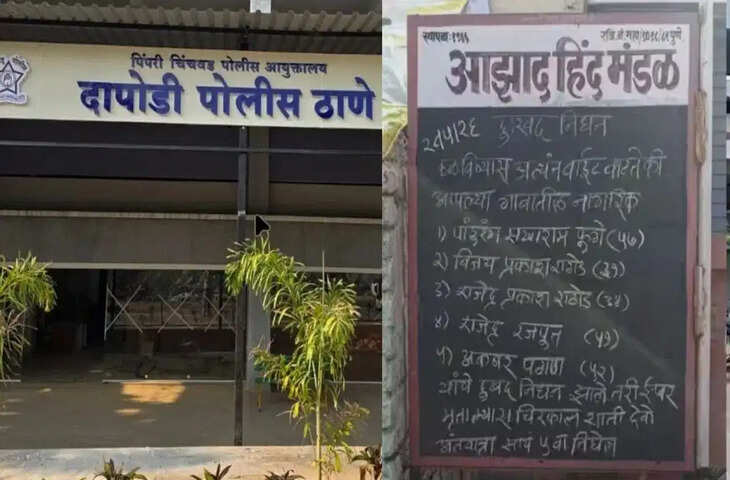 पिंपरी चिंचवड पोलीस आयुक्तालय
दापोडी पोलीस ठाणे
स्थापना: १९५५
आझाद हिंद मंडळ
दुःखद निधन
अत्यंत वाईट वाटते की
आपल्या गावातील नागरिक
१) पांडुरंग सखाराम फुगे (५७)
२) विजय प्रकाश राठोड (३१)
३) राजेंद्र प्रकाश राठोड (३४)
४) राजेंद्र रजपुत (५१)
५) अकबर पठाण (५२)
यांचे दुखद निधन झाले तरी ईश्वर
मृतात्म्यास चिरकाल शांती देवो
अंतयात्रा सायं ५ वा निघेल